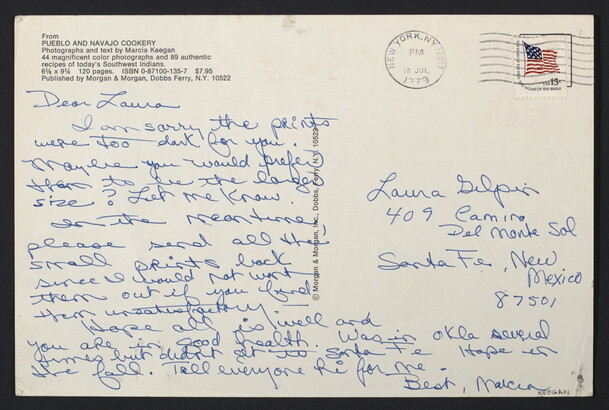 From
PUEBLO AND NAVAJO COOKERY
Photographs and text by Marcia Keegan
44 magnificent color photographs and 89 authentic
recipes of today's Southwest Indians.
6⅛ x 9¼ 120 pages. ISBN 0-87100-135-7 $7.95
Published by Morgan & Morgan, Dobbs Ferry, N.Y. 10522
NEW YORK, N.Y.
PM
18 JUL
1979
USA 15c
Dear Laura
I am sorry the prints
were too dark for you.
Maybe you would prefer
them to be the larger
size? Let me know.
In the meantime,
please send all the
small prints back
since I would not want
them out if you find
them unsatisfactory.
Hope all is well and
you are in good health. Was in Okla several
times but didn't get to Santa Fe Hope in
the fall. Tell everyone hi for me.
Best, Marcia
KEEGAN
© Morgan & Morgan, Inc., Dobbs Ferry, N.Y. 10522
Laura Gilpin
409 Camino
Del Monte Sol
Santa Fe, New
Mexico
87501